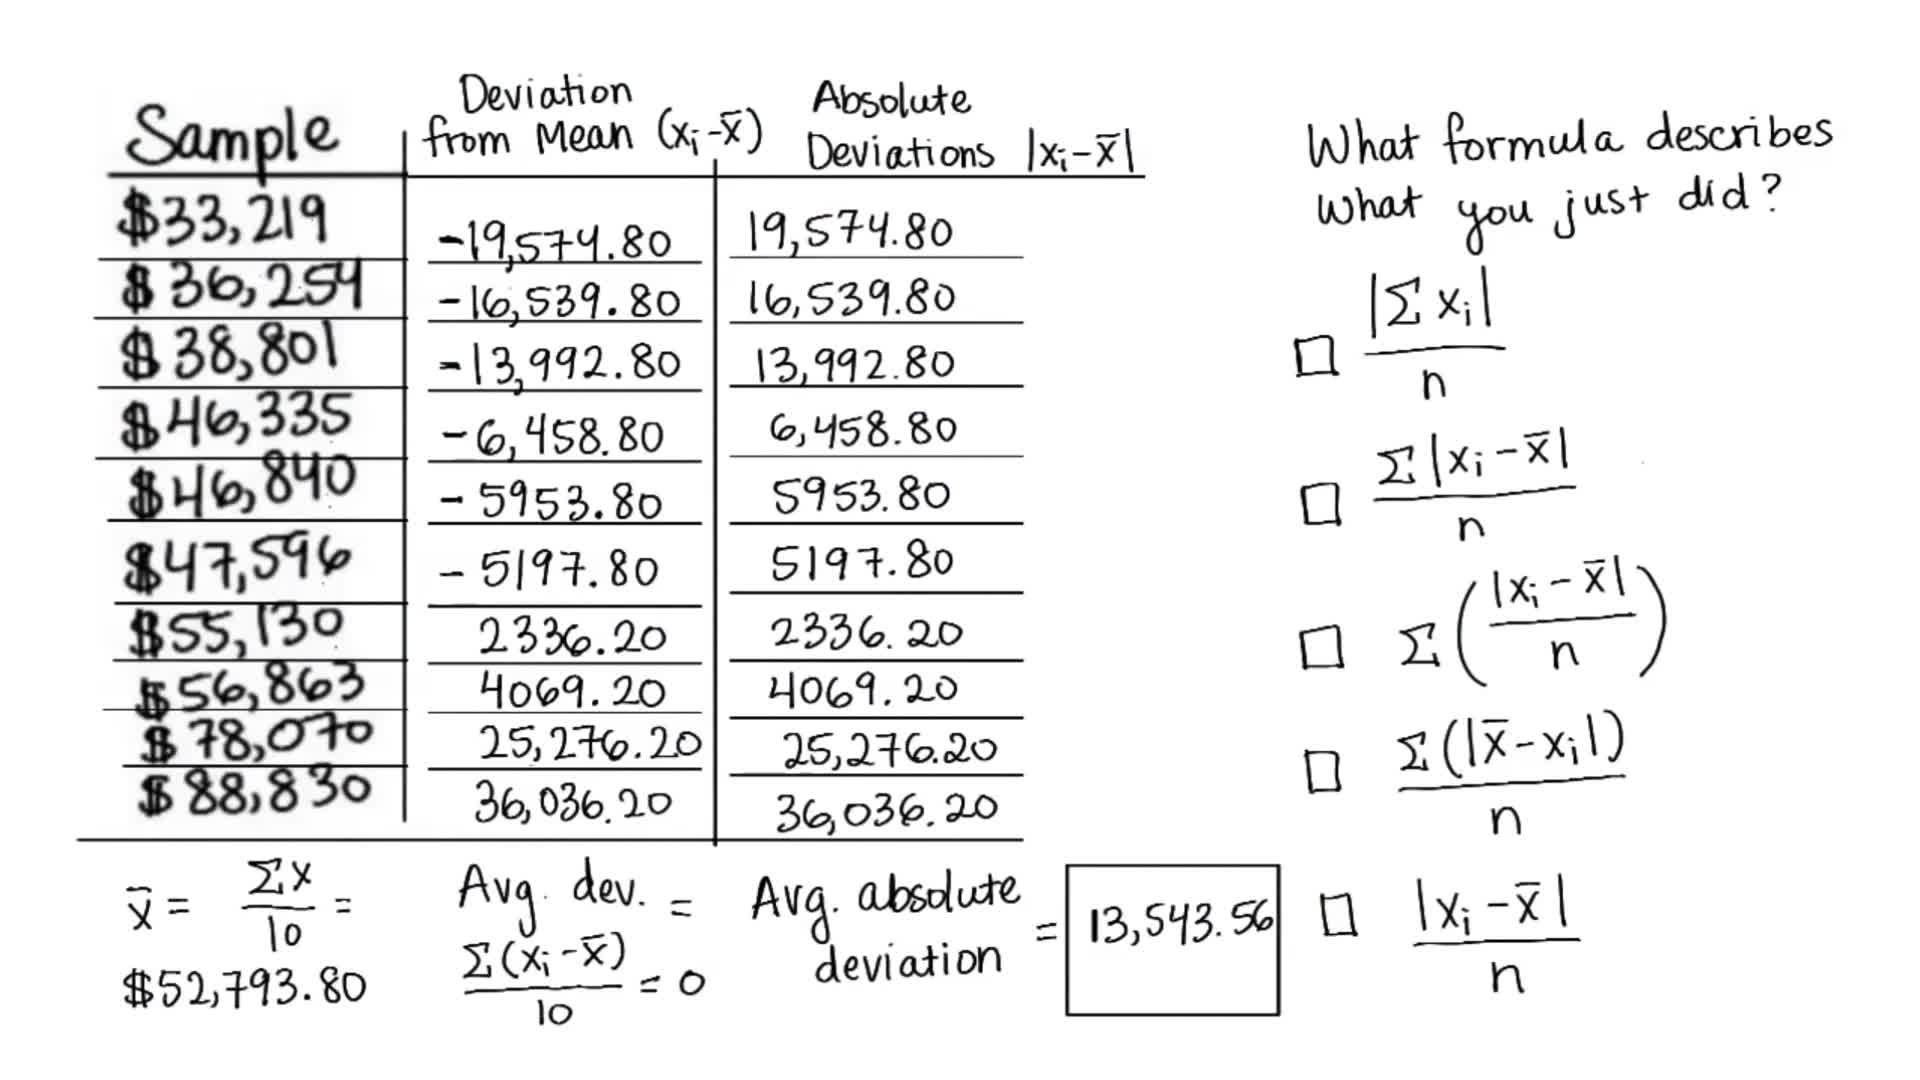 Sample
Deviation
from Mean (xᵢ-x̄)
Absolute
Deviations |xᵢ-x̄|
$33,219 -19,574.80 19,574.80
$36,254 -16,539.80 16,539.80
$38,801 -13,992.80 13,992.80
$46,335 -6,458.80 6,458.80
$46,840 -5953.80 5953.80
$47,596 -5197.80 5197.80
$55,130 2336.20 2336.20
$56,863 4069.20 4069.20
$78,070 25,276.20 25,276.20
$88,830 36,036.20 36,036.20
x̄ = Σx/10 =
$52,793.80
Avg. dev. =
Σ(xᵢ-x̄)/10 = 0
Avg. absolute
deviation
= 13,543.56
What formula describes
what you just did?
□ |Σxᵢ|/n
□ Σ|xᵢ-x̄|/n
□ Σ(|xᵢ-x̄|/n)
□ Σ(|x̄-xᵢ|)/n
□ |xᵢ-x̄|/n